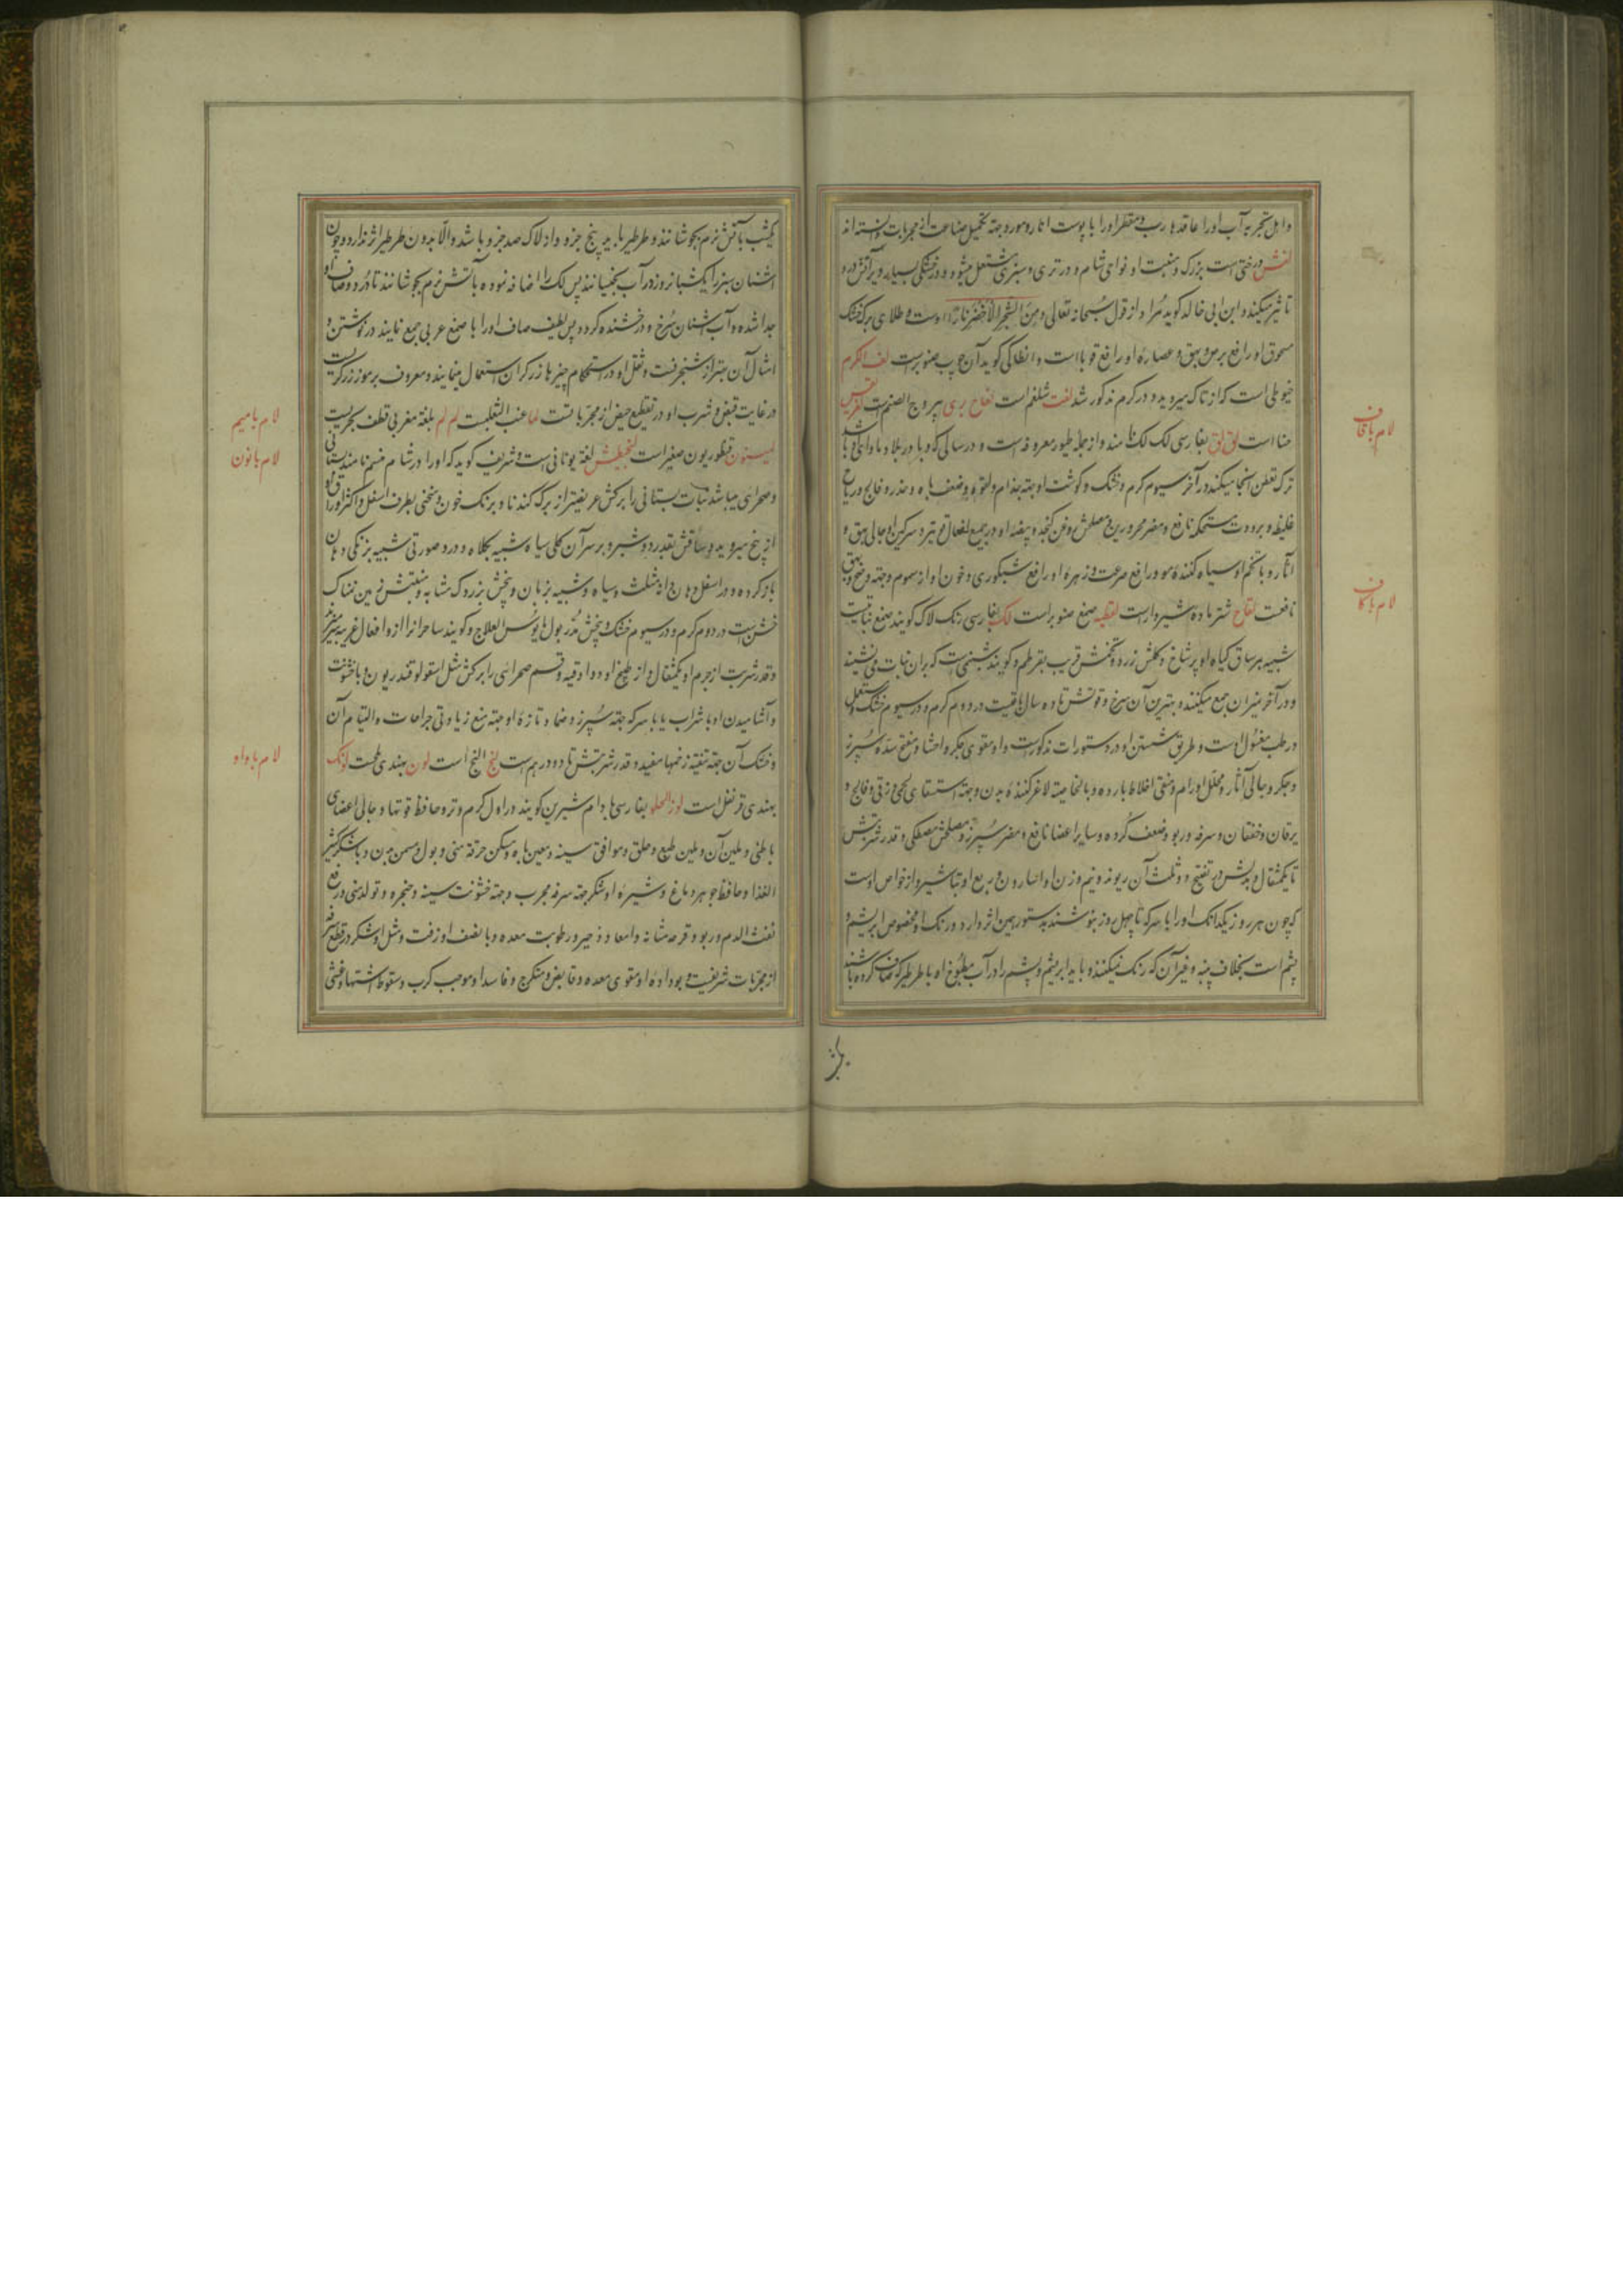 و اهل تجربه آب اورا عاقد هارب و مقطر اورا با پوست انار و مورد جهة تکمیل صناعت از مجربات دانسته‌اند
لفش درختی است بزرک و منبت او نواحی شام و در تری و سبزی مشتعل میشود و در خشکی بسیار دیر آتش درو
تاثیر میکند و ابن ابی خالد کوید مراد از قول سبحانه تعالی و من الشجر الاخضر نارا اوست و طلای برک خشک
مسحوق او رافع برص و بهق و عصاره او رافع قوبا است و انطاکی کوید آن چوب صنوبر است لفف الکرم
خیوطی است که از تاک میروید و در کرم مذکور شد لفت شلغم است لفاح بری یبروج الصنم است
حنا است لق لق بفارسی لک لک نامند و از جمله طیور معروفه است و در سالی که وبا در بلاد ماوای او باشد
ترک تعفن آنجا میکند در آخر سیوم کرم و خشک و کوشت او جهة جذام و لقوه و ضعف باه و خدر و فالج و ریاح
غلیظه و برودت مستحکمه نافع و مضر محرورین و مصلحش روغن کنجد و بیضه او در جمیع افعال قویتر و سرکین او جالی بهق و
آثار و با تخم او سیاه کننده مو و رافع صرعست و زهره او رافع شبکوری و خون او از سموم و جهة وضح و بهق
نافعست لقاح شتر ماده شیردار است لقطیه صمغ صنوبر است لک بفارسی رنک لاک کویند صمغ نباتیست
شبیه بر ساق کیاه او پر شاخ و کلش زرد و تخمش قریب بقرطم و کویند شبنمی است که بر آن نبات می نشیند
و در آخر میزان جمع میکنند و بهترین آن سرخ و قوتش تا ده سال باقیست در دوم کرم و در سیوم خشک و مستعمل
در طب مغسول اوست و طریق شستن او در دستورات مذکور است و او مقوی جکر و احشا و مفتح سده سپرز
و جکر و جالی آثار و محلل اورام و منقی اخلاط بارده و بالخاصیة لاغر کننده بدن و جهة استسقای لحمی و زقی و فالج و
یرقان و خفقان و سرفه و ربو و ضعف کرده و سایر اعضا نافع و مضر سپرز و مصلحش مصطکی و قدر شربتش
تا یکمثقال و بدلش در تفتیح دو ثلث آن ریوند و نیم وزن او اسارون و ربع او تباشیر و از خواص اوست
که چون هر روز یکدانک او را با سرکه تا چهل روز بنوشند بدستور همین اثر دارد و رنک او مخصوص ابریشم و
پشم است بخلاف پنبه و غیر آن که رنک نمیکند و باید ابریشم و پشم را در آب مطبوخ او با طرطیر که صاف کرده باشند
لام باقاف
لام باکاف
یکشب بآتش نرم بجوشانند و طرطیر باید پنج جزو و از لاک صد جزو باشد و الا بدون طرطیر اثر ندارد و چون
اشنان سبز را یکشبانروز در آب بخیسانند پس لک را اضافه نموده بآتش نرم بجوشانند تا درد و صاف او
جدا شده و آب اشنان سرخ و درخشنده کردد پس لطیف صاف او را با صمغ عربی جمع نمایند در نوشتن و
امثال آن بهتر از شنجرفست و ثقل او در استحکام چیزها زرکران استعمال مینمایند و معروف برموز زرکریست
در غایت قبض و شرب او در تقطیع حیض از مجرباتست لما عنب الثعلبست لم لم بلغة مغربی قطف بحریست
لمیسنون قنطوریون صغیر است لنجیطش لغة یونانی است و شریف کوید که او را در شام منسم نامند بستانی
و صحرائی میباشد نبات بستانی را برکش عریضتر از برک کندنا و برنک خون و منحنی بطرف اسفل و اکثر اوراق او
از بیخ میروید و ساقش بقدر دو شبر و بر سر آن کلی سیاه شبیه بکلاه و درو صورتی شبیه بزنکی دهان
باز کرده و در اسفل دهان او مثلث و سیاه و شبیه بزبان و بیخش بزردک مشابه و منبتش زمین نمناک
خشن است در دوم کرم و در سیوم خشک و بیخش مدر بول مایوس العلاج و کویند ساحر انرا ازو افعال غریبه
و قدر شربت از جرم او یکمثقال و از طبیخ او دو اوقیه و قسم صحرائی را برکش مثل اسقولوقندریون و با خشونت
و آشامیدن او با شراب یا با سرکه جهة سپرز و ضماد تازه او جهة منع زیادتی جراحات و التیام آن
و خشک آن جهة تنقیه زخمها مفید و قدر شربتش تا دو درهم است لنج النج است لون بهندی ملحست لونک
بهندی قرنفل است لوز الحلو بفارسی بادام شیرین کویند در اول کرم و تر و حافظ قوتها و جالی اعضای
باطنی و ملین آن و ملین طبع و حلق و موافق سینه و معین باه و مسکن حرقة منی و بول و مسمن بدن و با شکر کثیر
الغذا و حافظ جوهر دماغ و شیره او با شکر جهة سرفه مجرب و جهة خشونت سینه و حنجره و تولد منی و رفع
نفث الدم و ربو و قرحه مثانه و امعا و زحیر و رطوبت معده و با نصف او زفت و مثل او شکر در قطع سرفه
از مجربات شریفست و بو داده او مقوی معده و قابض و متکرج و فاسد او موجب کرب و سقوط اشتها و غشی
لام بامیم
لام بانون
لام باواو